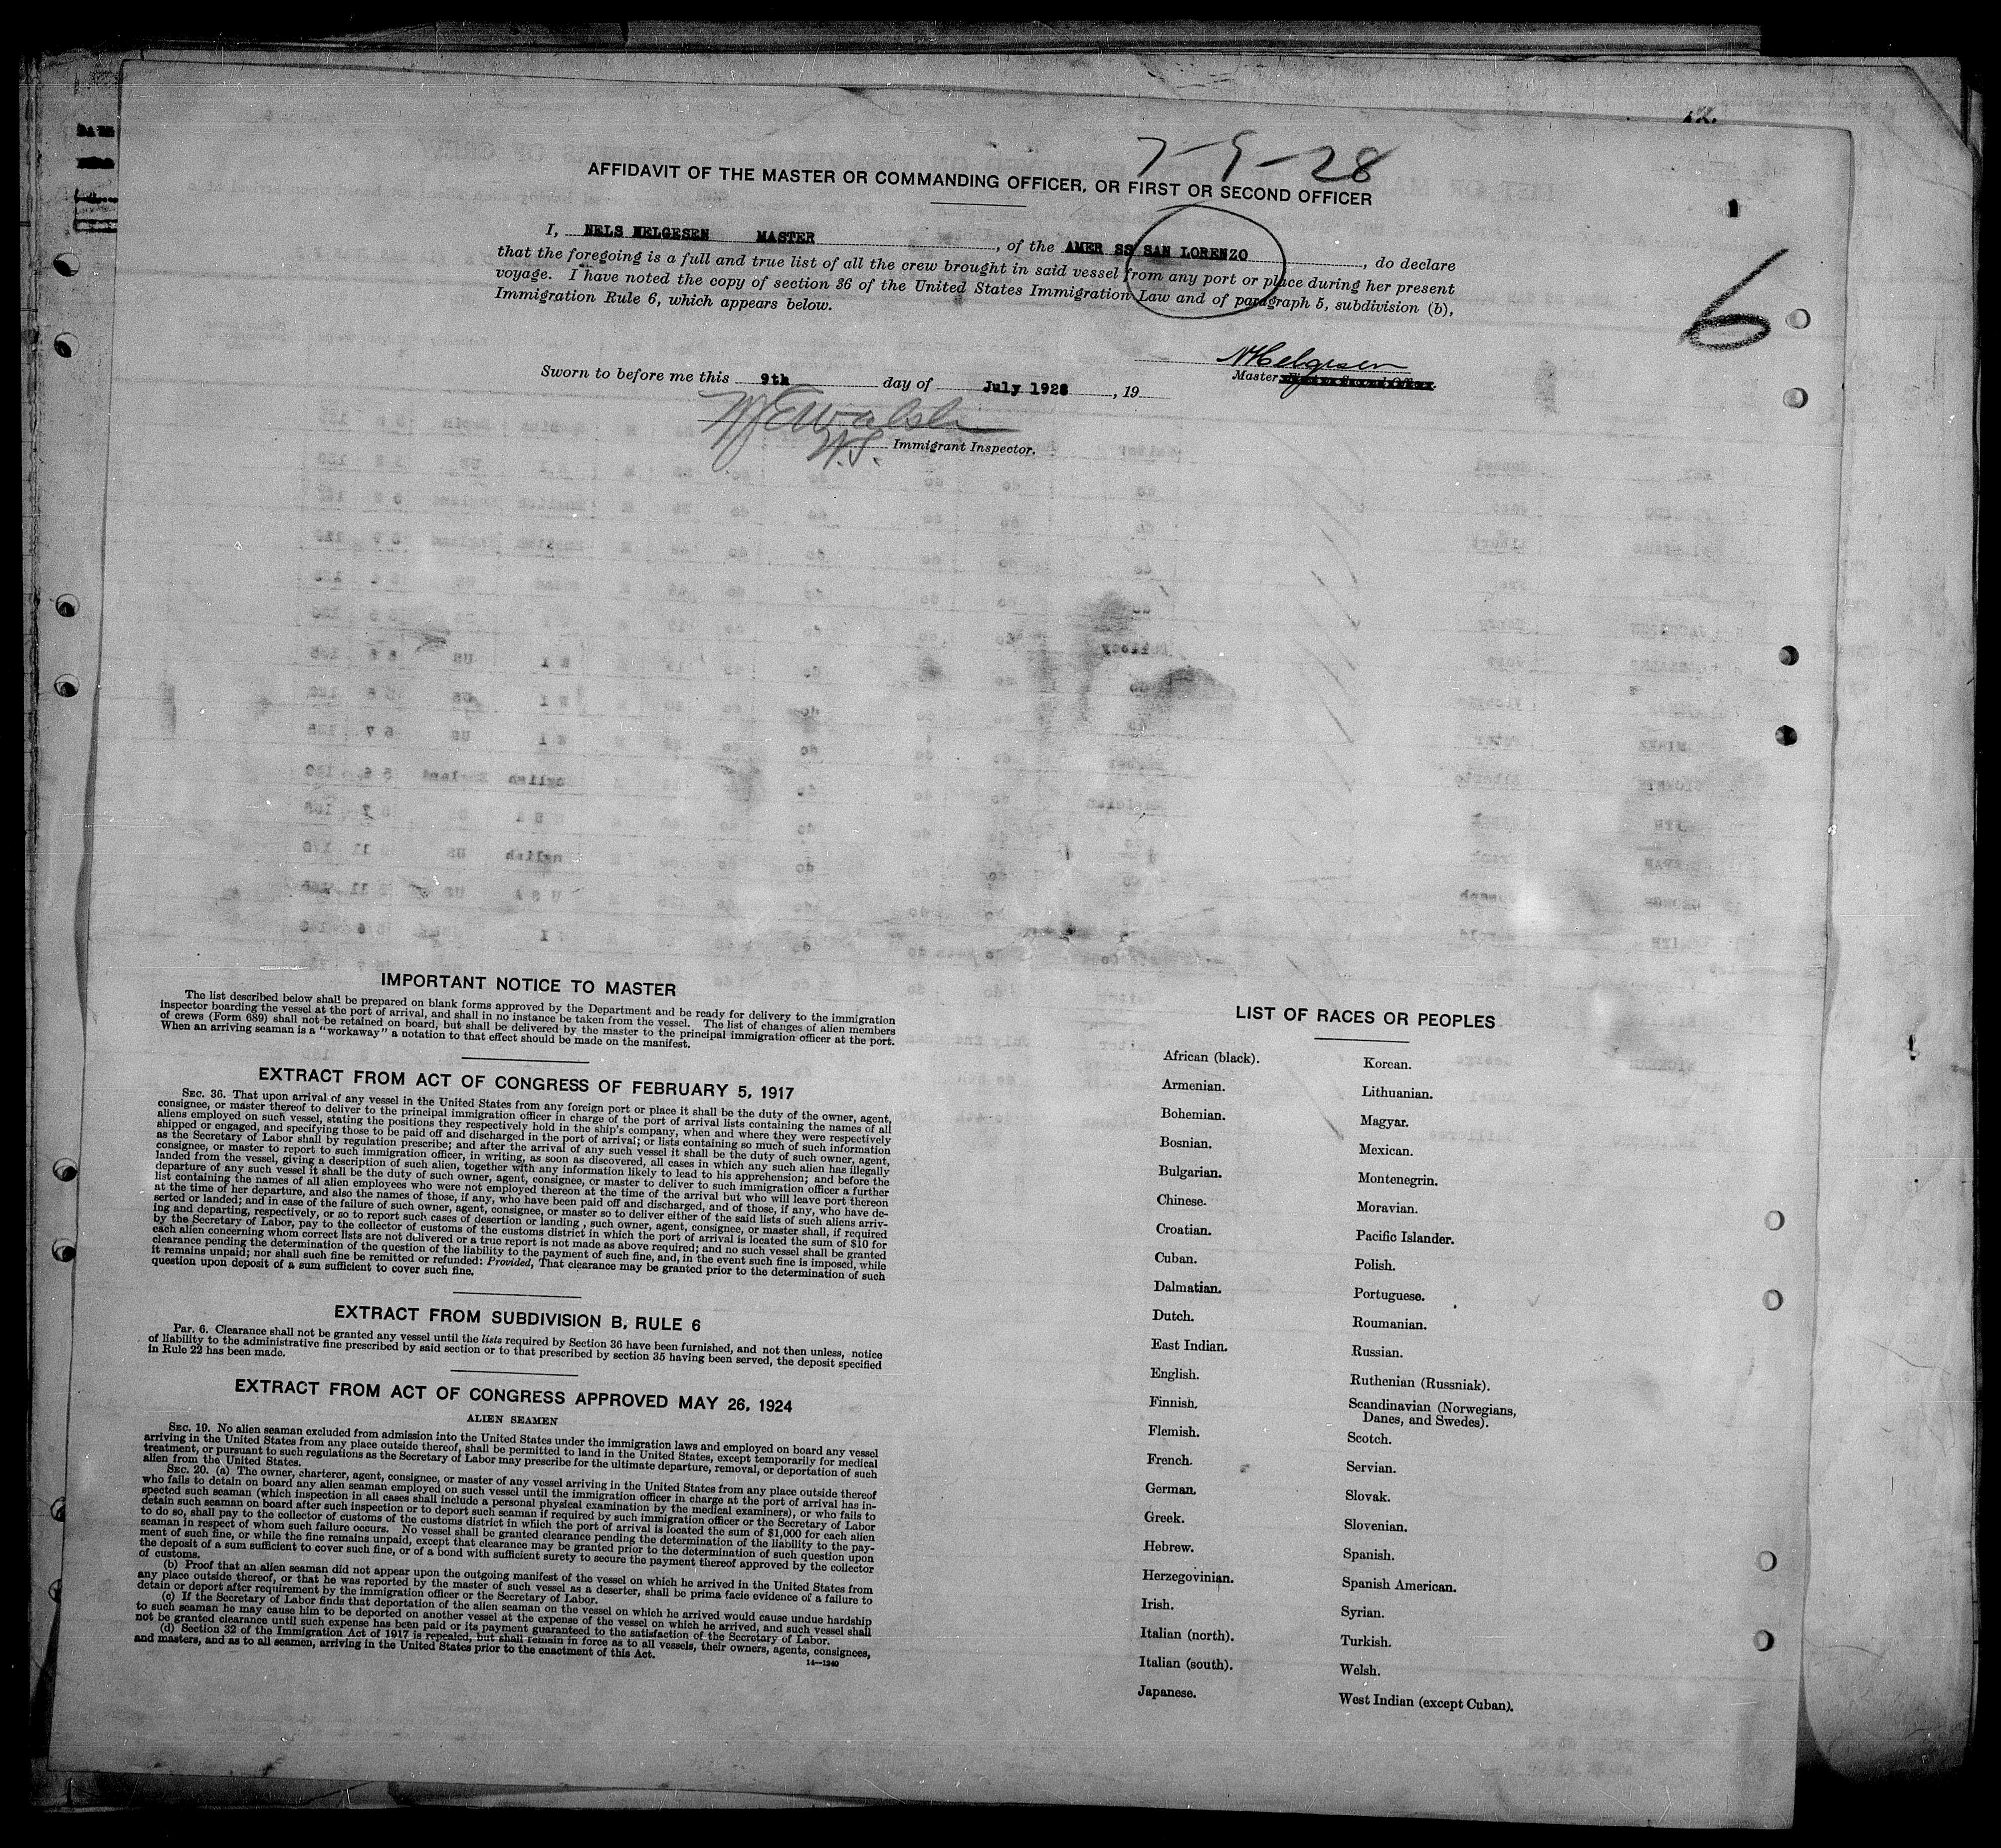 7-9-28
AFFIDAVIT OF THE MASTER OR COMMANDING OFFICER, OR FIRST OR SECOND OFFICER
I, NELS HELGESEN MASTER, of the AMER SS SAN LORENZO, do declare
that the foregoing is a full and true list of all the crew brought in said vessel from any port or place during her present
voyage. I have noted the copy of section 36 of the United States Immigration Law and of paragraph 5, subdivision (b),
Immigration Rule 6, which appears below.
6
NHelgesen
Master
Sworn to before me this 9th day of July 1928, 19
Immigrant Inspector.
IMPORTANT NOTICE TO MASTER
The list described below shall be prepared on blank forms approved by the Department and be ready for delivery to the immigration
inspector boarding the vessel at the port of arrival, and shall in no instance be taken from the vessel. The list of changes of alien members
of crews (Form 689) shall not be retained on board, but shall be delivered by the master to the principal immigration officer at the port.
When an arriving seaman is a "workaway" a notation to that effect should be made on the manifest.
EXTRACT FROM ACT OF CONGRESS OF FEBRUARY 5, 1917
SEC. 36. That upon arrival of any vessel in the United States from any foreign port or place it shall be the duty of the owner, agent,
consignee, or master thereof to deliver to the principal immigration officer in charge of the port of arrival lists containing the names of all
aliens employed on such vessel, stating the positions they respectively hold in the ship's company, when and where they were respectively
shipped or engaged, and specifying those to be paid off and discharged in the port of arrival; or lists containing so much of such information
as the Secretary of Labor shall by regulation prescribe; and after the arrival of any such vessel it shall be the duty of such owner, agent,
consignee, or master to report to such immigration officer, in writing, as soon as discovered, all cases in which any such alien has illegally
landed from the vessel, giving a description of such alien, together with any information likely to lead to his apprehension; and before the
departure of any such vessel it shall be the duty of such owner, agent, consignee, or master to deliver to such immigration officer a further
list containing the names of all alien employees who were not employed thereon at the time of the arrival but who will leave port thereon
at the time of her departure, and also the names of those, if any, who have been paid off and discharged, and of those, if any, who have de-
serted or landed; and in case of the failure of such owner, agent, consignee, or master so to deliver either of the said lists of such aliens arriv-
ing and departing, respectively, or so to report such cases of desertion or landing, such owner, agent, consignee, or master shall, if required
by the Secretary of Labor, pay to the collector of customs of the customs district in which the port of arrival is located the sum of $10 for
each alien concerning whom correct lists are not delivered or a true report is not made as above required; and no such vessel shall be granted
clearance pending the determination of the question of the liability to the payment of such fine, and, in the event such fine is imposed, while
it remains unpaid; nor shall such fine be remitted or refunded: Provided, That clearance may be granted prior to the determination of such
question upon deposit of a sum sufficient to cover such fine.
EXTRACT FROM SUBDIVISION B, RULE 6
Par. 6. Clearance shall not be granted any vessel until the lists required by Section 36 have been furnished, and not then unless, notice
of liability to the administrative fine prescribed by said section or to that prescribed by section 35 having been served, the deposit specified
in Rule 22 has been made.
EXTRACT FROM ACT OF CONGRESS APPROVED MAY 26, 1924
ALIEN SEAMEN
SEC. 19. No alien seaman excluded from admission into the United States under the immigration laws and employed on board any vessel
arriving in the United States from any place outside thereof, shall be permitted to land in the United States, except temporarily for medical
treatment, or pursuant to such regulations as the Secretary of Labor may prescribe for the ultimate departure, removal, or deportation of such
alien from the United States.
SEC. 20. (a) The owner, charterer, agent, consignee, or master of any vessel arriving in the United States from any place outside thereof
who fails to detain on board any alien seaman employed on such vessel until the immigration officer in charge at the port of arrival has in-
spected such seaman (which inspection in all cases shall include a personal physical examination by the medical examiners), or who fails to
detain such seaman on board after such inspection or to deport such seaman if required by such immigration officer or the Secretary of Labor
to do so, shall pay to the collector of customs of the customs district in which the port of arrival is located the sum of $1,000 for each alien
seaman in respect of whom such failure occurs. No vessel shall be granted clearance pending the determination of the liability to the pay-
ment of such fine, or while the fine remains unpaid, except that clearance may be granted prior to the determination of such question upon
the deposit of a sum sufficient to cover such fine, or of a bond with sufficient surety to secure the payment thereof approved by the collector
of customs.
(b) Proof that an alien seaman did not appear upon the outgoing manifest of the vessel on which he arrived in the United States from
any place outside thereof, or that he was reported by the master of such vessel as a deserter, shall be prima facie evidence of a failure to
detain or deport after requirement by the immigration officer or the Secretary of Labor.
(c) If the Secretary of Labor finds that deportation of the alien seaman on the vessel on which he arrived would cause undue hardship
to such seaman he may cause him to be deported on another vessel at the expense of the vessel on which he arrived, and such vessel shall
not be granted clearance until such expense has been paid or its payment guaranteed to the satisfaction of the Secretary of Labor.
(d) Section 32 of the Immigration Act of 1917 is repealed, but shall remain in force as to all vessels, their owners, agents, consignees,
and masters, and as to all seamen, arriving in the United States prior to the enactment of this Act.
14—1240
LIST OF RACES OR PEOPLES
African (black).
Armenian.
Bohemian.
Bosnian.
Bulgarian.
Chinese.
Croatian.
Cuban.
Dalmatian.
Dutch.
East Indian.
English.
Finnish.
Flemish.
French.
German.
Greek.
Hebrew.
Herzegovinian.
Irish.
Italian (north).
Italian (south).
Japanese.
Korean.
Lithuanian.
Magyar.
Mexican.
Montenegrin.
Moravian.
Pacific Islander.
Polish.
Portuguese.
Roumanian.
Russian.
Ruthenian (Russniak).
Scandinavian (Norwegians,
Danes, and Swedes).
Scotch.
Servian.
Slovak.
Slovenian.
Spanish.
Spanish American.
Syrian.
Turkish.
Welsh.
West Indian (except Cuban).